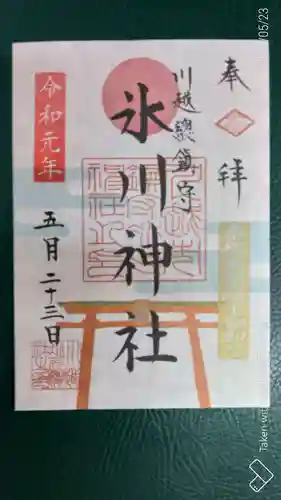 奉拝
川越總鎮守
氷川神社
令和元年
五月二十三日
/05/23
Taken wit